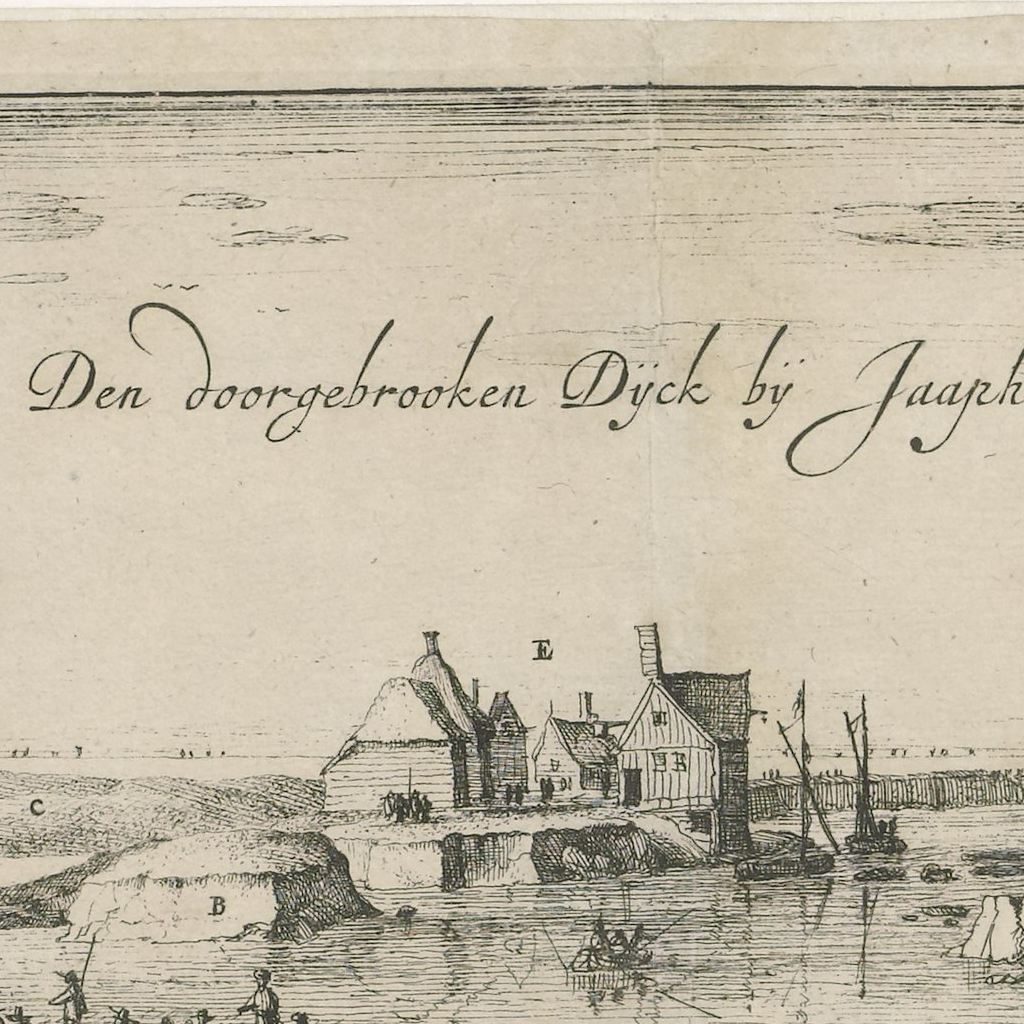 Den doorgebrooken Dÿck bÿ Jaaph
E
C
B